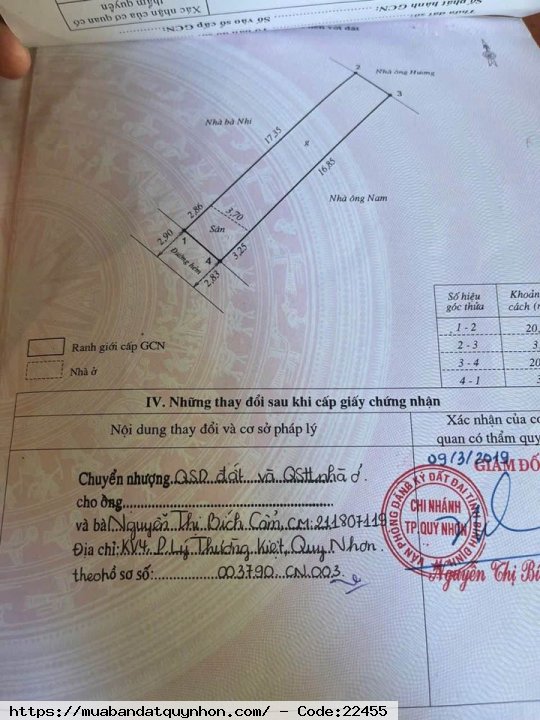 Xác nhận của cơ quan có
thẩm quyền
Số vào sổ cấp GCN:
Số phát hành GCN:
2
Nhà ông Hương
3
Nhà bà Nhi
17,35
8
16,85
Nhà ông Nam
2,86
3,70
Sân
2,90
1
Đường hẻm
4
3,25
2,83
Số hiệu
góc thửa
Khoản
cách (
1 - 2
20,
2 - 3
3
3 - 4
20
4 - 1
3
Ranh giới cấp GCN
Nhà ở
IV. Những thay đổi sau khi cấp giấy chứng nhận
Nội dung thay đổi và cơ sở pháp lý
Xác nhận của cơ
quan có thẩm quy
09/3/2019
GIÁM ĐỐ
Chuyển nhượng QSD đất và QSH nhà ở
cho ông
và bà Nguyễn Thị Bích Cẩm, CM: 211807119
Địa chỉ: KV4, P. Lý Thường Kiệt, Quy Nhơn.
theo hồ sơ số: 003790.CN.003
VĂN PHÒNG ĐĂNG KÝ ĐẤT ĐAI TỈNH BÌNH ĐỊNH
CHI NHÁNH
TP.QUY NHƠN
Nguyễn Thị Bí
https://muabandatquynhon.com/ - Code:22455